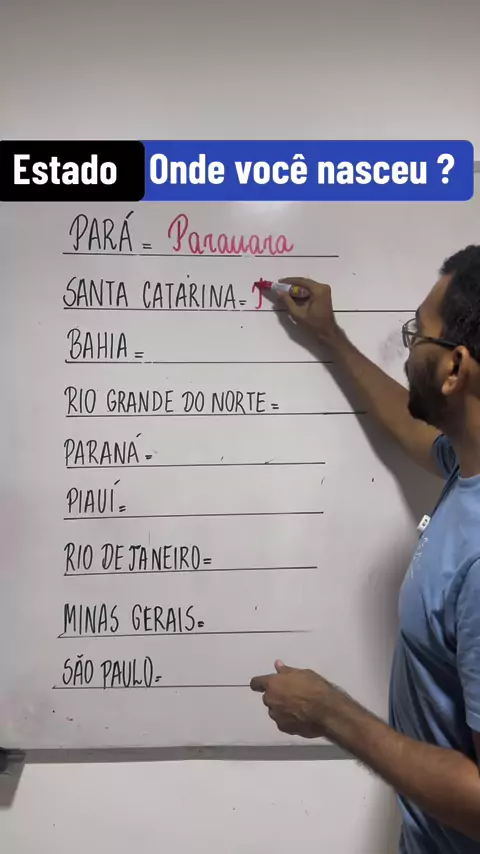 Estado Onde você nasceu ?
PARÁ = Parauara
SANTA CATARINA=
BAHIA =
RIO GRANDE DO NORTE =
PARANÁ=
PIAUÍ=
RIO DE JANEIRO=
MINAS GERAIS=
SÃO PAULO=